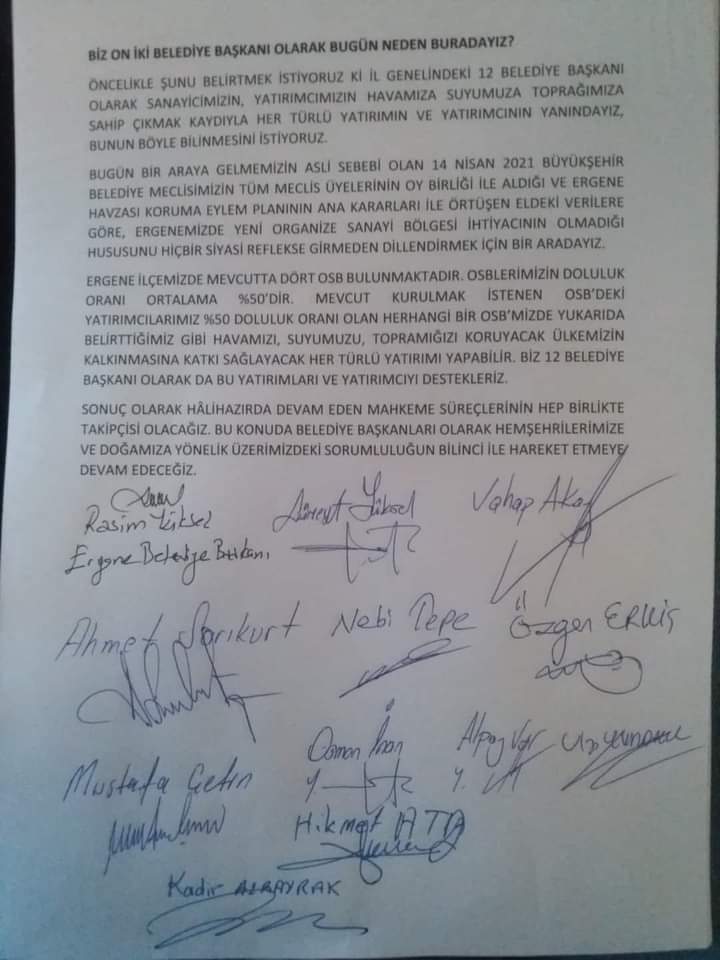 BİZ ON İKİ BELEDİYE BAŞKANI OLARAK BUGÜN NEDEN BURADAYIZ?
ÖNCELİKLE ŞUNU BELİRTMEK İSTİYORUZ Kİ İL GENELİNDEKİ 12 BELEDİYE BAŞKANI
OLARAK SANAYİCİMİZİN, YATIRIMCIMIZIN HAVAMIZA SUYUMUZA TOPRAĞIMIZA
SAHİP ÇIKMAK KAYDIYLA HER TÜRLÜ YATIRIMIN VE YATIRIMCININ YANINDAYIZ,
BUNUN BÖYLE BİLİNMESİNİ İSTİYORUZ.
BUGÜN BİR ARAYA GELMEMİZİN ASLİ SEBEBİ OLAN 14 NİSAN 2021 BÜYÜKŞEHİR
BELEDİYE MECLİSİMİZİN TÜM MECLİS ÜYELERİNİN OY BİRLİĞİ İLE ALDIĞI VE ERGENE
HAVZASI KORUMA EYLEM PLANININ ANA KARARLARI İLE ÖRTÜŞEN ELDEKİ VERİLERE
GÖRE, ERGENEMİZDE YENİ ORGANİZE SANAYİ BÖLGESİ İHTİYACININ OLMADIĞI
HUSUSUNU HİÇBİR SİYASİ REFLEKSE GİRMEDEN DİLLENDİRMEK İÇİN BİR ARADAYIZ.
ERGENE İLÇEMİZDE MEVCUTTA DÖRT OSB BULUNMAKTADIR. OSBLERİMİZİN DOLULUK
ORANI ORTALAMA %50'DİR. MEVCUT KURULMAK İSTENEN OSB'DEKİ
YATIRIMCILARIMIZ %50 DOLULUK ORANI OLAN HERHANGİ BİR OSB'MİZDE YUKARIDA
BELİRTTİĞİMİZ GİBİ HAVAMIZI, SUYUMUZU, TOPRAMIĞIZI KORUYACAK ÜLKEMİZİN
KALKINMASINA KATKI SAĞLAYACAK HER TÜRLÜ YATIRIMI YAPABİLİR. BİZ 12 BELEDİYE
BAŞKANI OLARAK DA BU YATIRIMLARI VE YATIRIMCIYI DESTEKLERİZ.
SONUÇ OLARAK HÂLİHAZIRDA DEVAM EDEN MAHKEME SÜREÇLERİNİN HEP BİRLİKTE
TAKİPÇİSİ OLACAĞIZ. BU KONUDA BELEDİYE BAŞKANLARI OLARAK HEMŞEHRİLERİMİZE
VE DOĞAMIZA YÖNELİK ÜZERİMİZDEKİ SORUMLULUĞUN BİLİNCİ İLE HAREKET ETMEYE
DEVAM EDECEĞİZ.
Rasim Yüksel
Yüksel
Vahap Akay
Ergene Belediye Başkanı
Ahmet Sarıkurt
Nebi Tepe
Özgen ERKİŞ
Mustafa Çetin
Osman İnan
Alpay Var
Hikmet ATA
Kadir ALBAYRAK